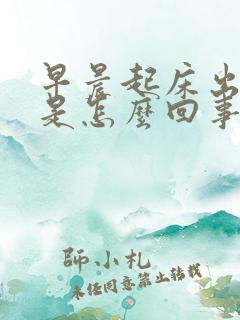 早晨起床出
是怎麼回事
師小札
未经同意禁止转载